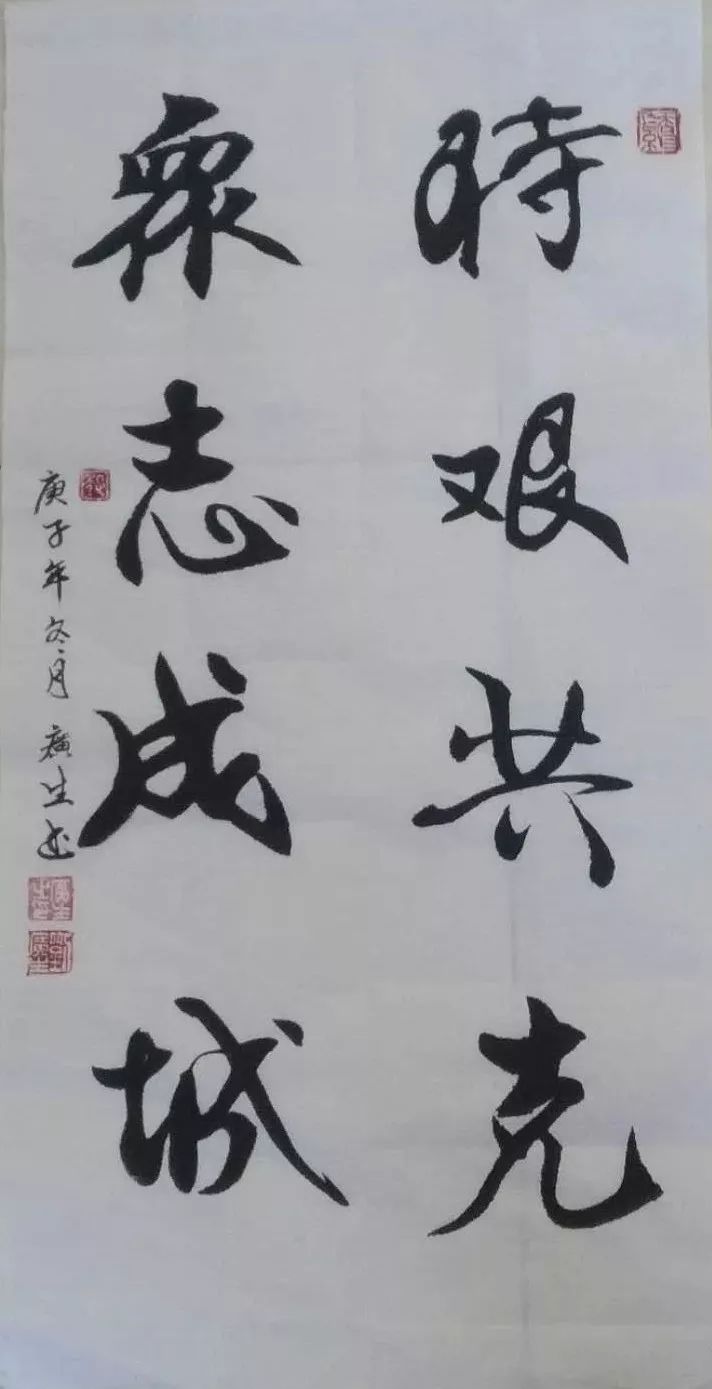 時艰共克
衆志成城
庚子年冬月廣生书